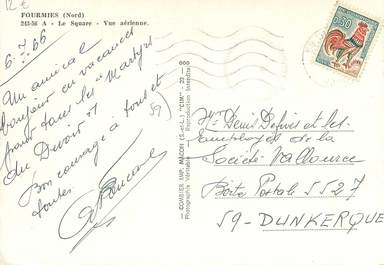 12 €
FOURMIES (Nord)
243-56 A - Le Square - Vue aérienne.
6.7.66
Un amical
bonjour en vacances
pour tous les "Martyrs
du Devoir"
Bon courage à tous et
toutes
COMBIER IMP. MACON (S.-&-L.) "CIM"
Photographie Véritable - Reproduction Interdite
0,30
Mr Denis et les
employés de la
Société Vallourec
Boite Postale 5527
59 - DUNKERQUE